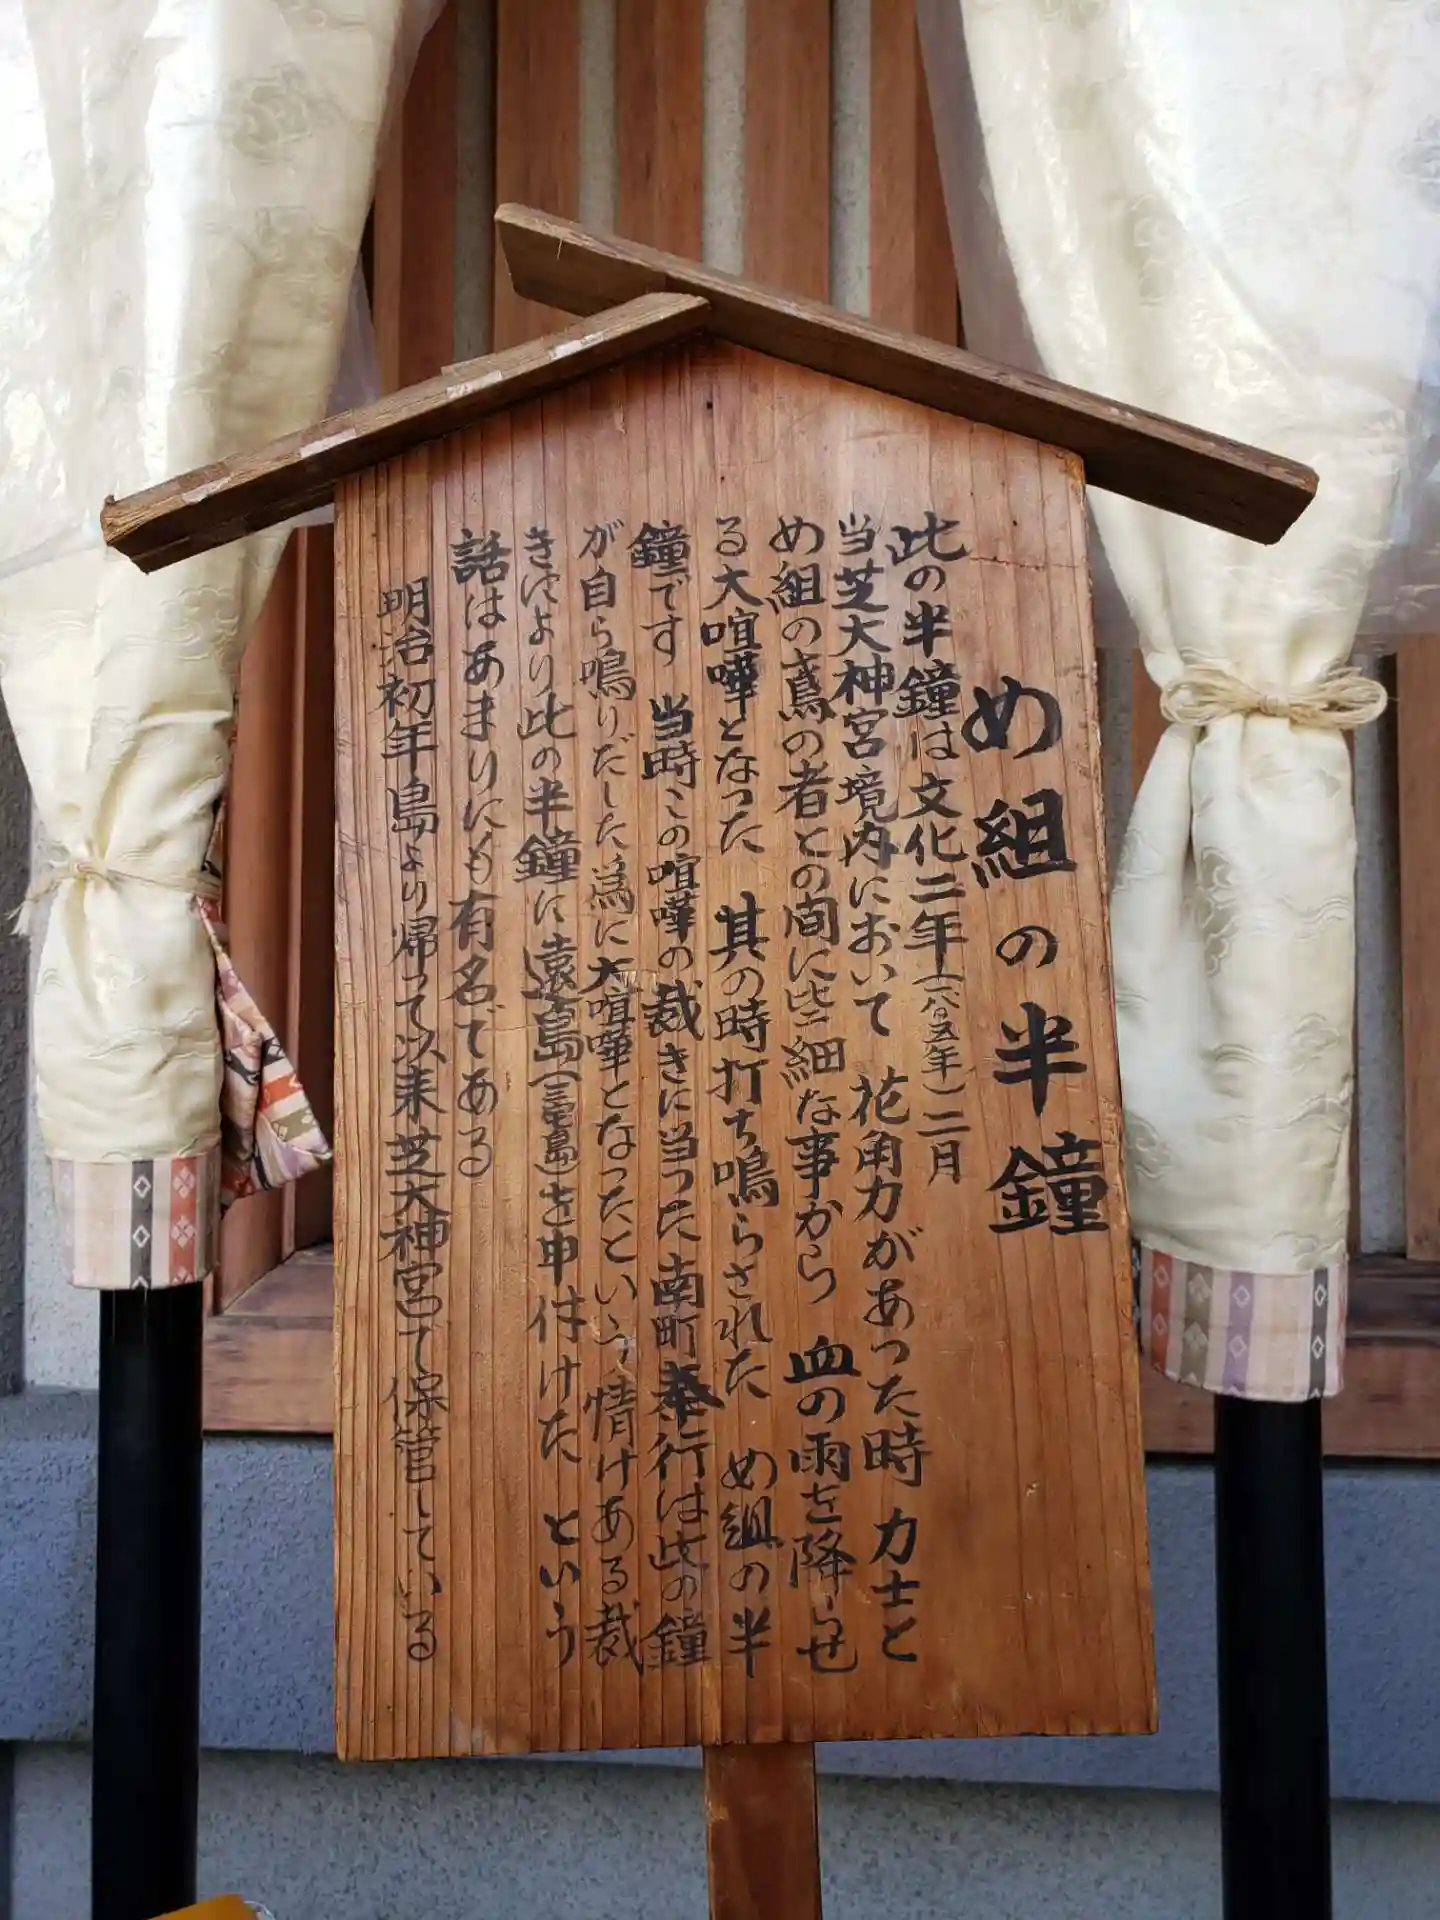 め組の半鐘
此の半鐘は文化二年(一八〇五年)二月
当芝大神宮境内において 花角力があった時 力士と
め組の鳶の者との間に些細な事から 血の雨を降らせ
る大喧嘩となった 其の時打ち鳴らされた め組の半
鐘です 当時この喧嘩の裁きに当った南町奉行は此の鐘
が自ら鳴りだした為に大喧嘩となったという情けある裁
きにより此の半鐘に遠島(三宅島)を申付けた という
話はあまりにも有名である
明治初年島より帰って以来芝大神宮で保管している